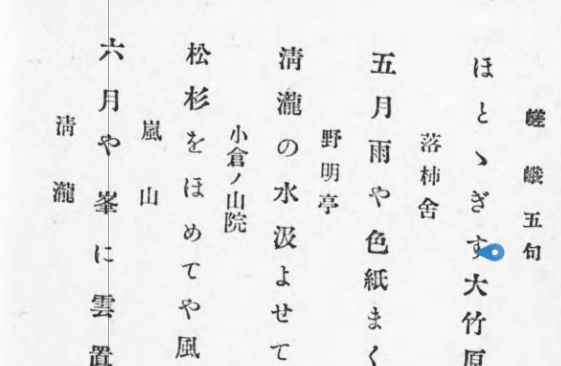 嵯峨五句
ほとゝぎす大竹原
落柿舎
五月雨や色紙まく
野明亭
淸瀧の水汲よせて
小倉ノ山院
松杉をほめてや風
嵐山
六月や峯に雲置
淸瀧